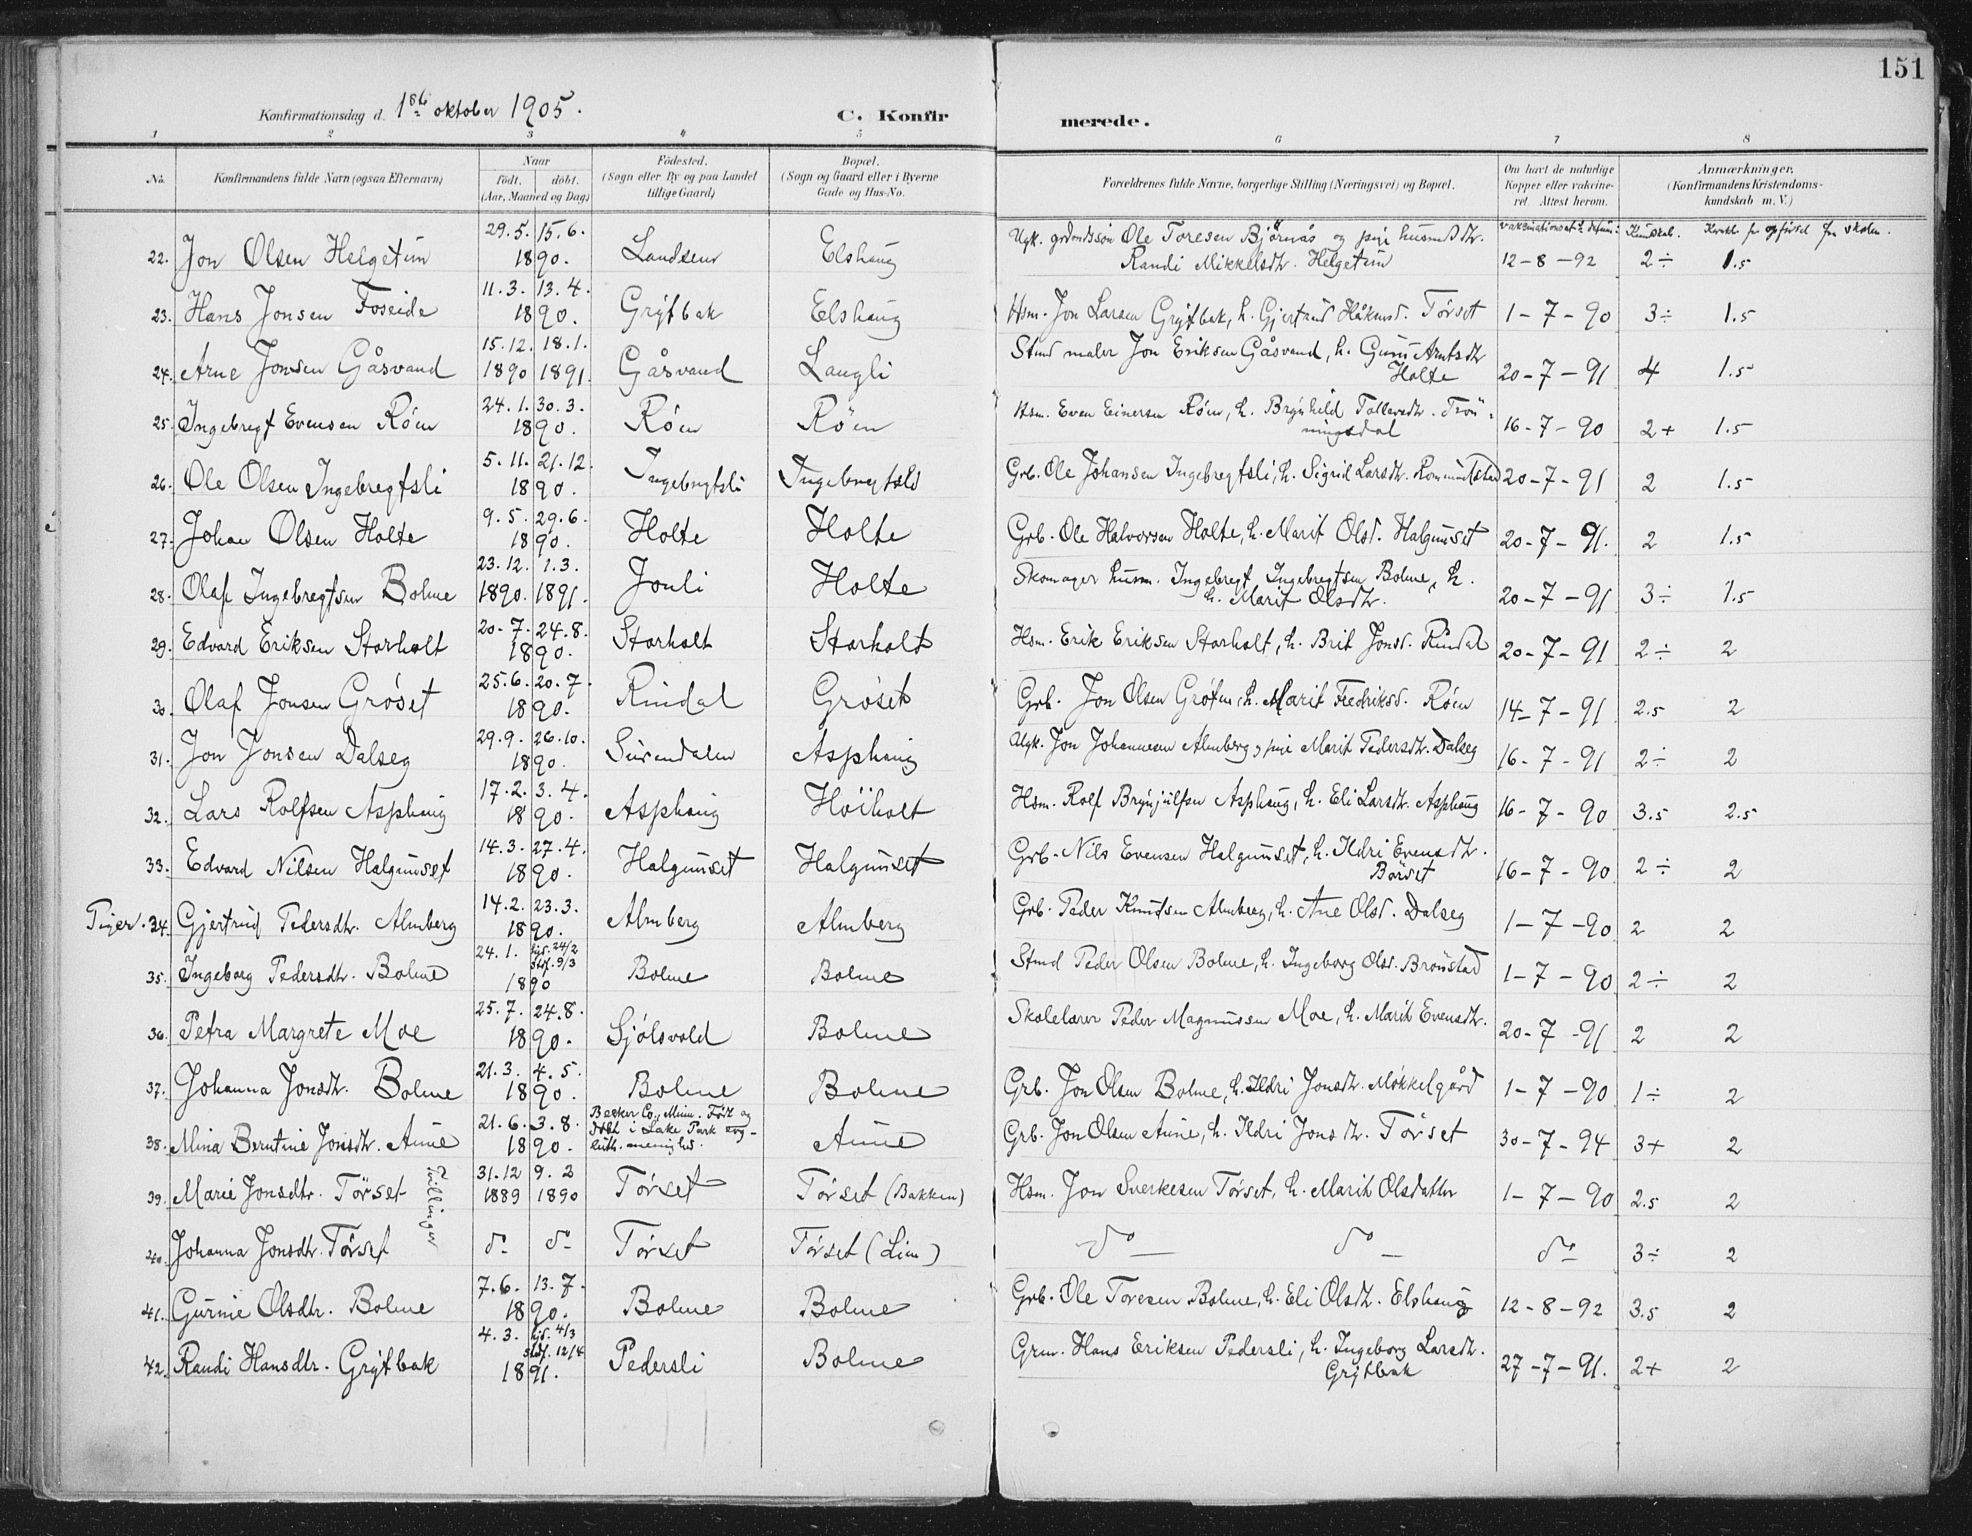 151
Konfirmationsdag d. 1ste oktober 1905. C. Konfirmerede.
1 2 3 4 5 6 7 8
No. Konfirmandens fulde Navn (ogsaa Efternavn) Naar født. døbt. (Aar, Maaned og Dag) Fødested. (Sogn eller By og paa Landet tillige Gaard) Bopæl. (Sogn og Gaard eller i Byerne Gade og Hus-No. Forældrenes fulde Navne, borgerlige Stilling (Næringsvei) og Bopæl. Om havt de naturlige Kopper eller vakcineret. Attest herom. Anmærkninger. (Konfirmandens Kristendomskundskab m. V.)
Kundskab. Karakt. for opførsel fra skolen.
22. Jon Olsen Helgetun 29.5. 15.6. 1890. Elshaug Ugk. Ole Toresen Bjørnås og pige Randi Mikkelsdtr. Helgetun 12-8-92 2÷ 1.5
23. Hans Jonsen Foseide 11.3. 13.4. 1890. Grytbak Elshaug Hsm. Jon Larsen Grytbak, h. Gjertrud Håknsd. Tørset 1-7-90 3÷ 1.5
24. Arne Jonsen Gåsvand 15.12. 1890 18.1. 1891. Gåsvand Langli Stmd maler Jon Eriksen Gåsvand, h. Guru Arntsdtr Holte 20-7-91 4 1.5
25. Ingebregt Evensen Røen 24.1. 30.3. 1890. Røen Røen Hsm. Even Einersen Røen, h. Brynhild Tollevsdtr. Trønningsdal 16-7-90 2+ 1.5
26. Ole Olsen Ingebregtsli 5.11. 21.12. 1890. Ingebregtsli Ingebregtsli Grb. Ole Johansen Ingebregtsli, h. Sigrid Larsdtr. Romundstad 20-7-91 2 1.5
27. Johan Olsen Holte 9.5. 29.6. 1890. Holte Holte Grb. Ole Halvorsen Holte, h. Marit Olsd. Halgunset 20-7-91. 2 1.5
28. Olaf Ingebregtsen Bolme 23.12. 1890. 1.3. 1891. Jonli Holte Skomager husm. Ingebregt Ingebregtsen Bolme, h. h. Marit Olsdtr. 20-7-91 3÷ 1.5
29. Edvard Eriksen Storholt 20.7. 24.8. 1890. Storholt Storholt Hsm. Erik Eriksen Storholt, h. Brit Jonsd. Rindal 20-7-91 2÷ 2
30. Olaf Jonsen Grøset 25.6. 20.7. 1890. Rindal Grøset Grb. Jon Olsen h. Marit Fredriksd. Røen 14-7-91 2.5 2
31. Jon Jonsen Dalseg 29.9. 26.10. 1890. Surendalen Asphaug Ugk. Jon Johannesen Almberg, pige Marit Pedersdtr. Dalseg 16-7-91 2÷ 2
32. Lars Rolfsen Asphaug 17.2. 3.4. 1890. Asphaug Høiholt Hsm. Rolf Brynjulfsen Asphaug, h. Eli Larsdtr. Asphaug 16-7-90 3.5 2.5
33. Edvard Nilsen Halgunset 14.3. 27.4. 1890. Halgunset Halgunset Grb. Nils Evensen Halgunset, h. Ildri Evensdtr. Børset 16-7-90 2÷ 2
Piger. 34. Gjertrud Pedersdtr. Almberg 14.2. 23.3. 1890. Almberg Almberg Grb. Peder Knudsen Almberg, h. Ane Olsd. Dalseg 1-7-90 2 2
35. Ingeborg Pedersdtr. Bolme 24.1. hjd. 24/2 stdf. 9/3 1890 Bolme Bolme Stmd Peder Olsen Bolme, h. Ingeborg Olsd. Brønstad 1-7-90 2÷ 2
36. Petra Margrete Moe 25.7. 24.8. 1890. Sjølsvold Bolme Skolelærer Peder Magnussen Moe, h. Marit Evensdtr. 20-7-91 2 2
37. Johanna Jonsdtr. Bolme 21.3. 4.5. 1890. Bolme Bolme Grb. Jon Olsen Bolme, h. Ildri Jonsdtr. Møkkelgård 1-7-90 1÷ 2
38. Mina Berntine Jonsdtr. Aune 21.6. 3.8. 1890. Becker Co., Minn. Født og døbt i Lake Park evg-luth. menighed. Aune Grb. Jon Olsen Aune, h. Ildri Jonsdtr. Tørset 30-7-94 3+ 2
39. Marie Jonsdtr. Tørset Tvillinger 31.12 1889 9.2 1890 Tørset Tørset (Bakken) Hsm. Jon Sverkesen Tørset, h. Marit Olsdatter 1-7-90 2.5 2
40. Johanna Jonsdtr. Tørset do do Tørset Tørset (Lien) do do do 3÷ 2
41. Gurine Olsdtr. Bolme 7.6. 13.7. 1890. Bolme Bolme Grb. Ole Toresen Bolme, h. Eli Olsdtr. Elshaug 12-8-92 3.5 2
42. Randi Hansdtr. Grytbak 4.3. hjd. 4/3 stdf. 12/4 1891. Pedersli Bolme Grm. Hans Eriksen Pedersli, h. Ingeborg Larsdtr. Grytbak 27-7-91. 2+ 2